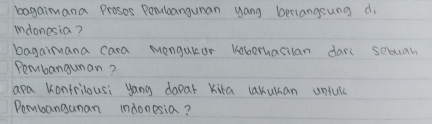 bagaimana Proses Pembangunan yang berlangsung di
indonesia?
bagaimana cara mengukur keberhasilan dari sebuah
Pembangunan?
apa kontribusi yang dapat kita lakukan untuk
Pembangunan indonesia?